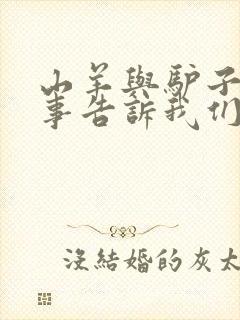 山羊與驴子
事告訴我们
沒結婚的灰太